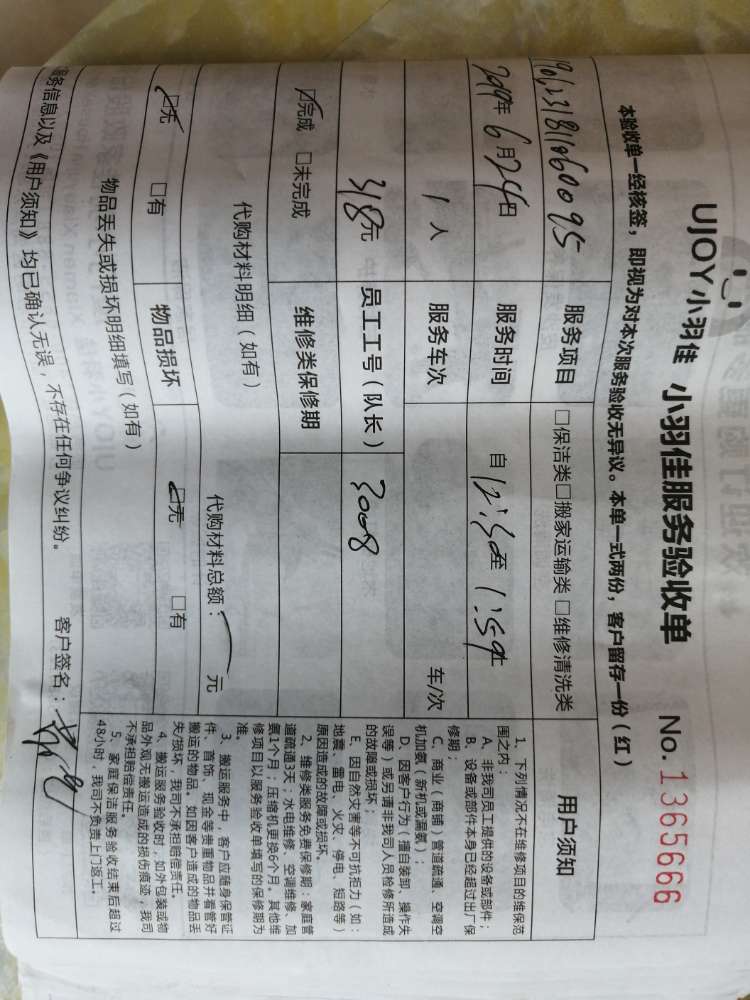 UJOY小羽佳 小羽佳服务验收单 No. 1365666
本验收单一经核签，即视为对本次服务验收无异议。本单一式两份，客户留存一份（红）
服务项目 □保洁类□搬家运输类□维修清洗类
年6月24日 服务时间 自12:30至1:59止
1人 服务车次 车/次
318元 员工工号（队长） 3008
☑完成 □未完成 维修类保修期
代购材料明细（如有） 代购材料总额： 元
☑无 □有 物品损坏 ☑无 □有
物品丢失或损坏明细填写（如有）
服务信息以及《用户须知》均已确认无误，不存在任何争议纠纷。 客户签名：
用户须知
1、下列情况不在维修项目的维保范
围之内：
A、非我司员工提供的设备或部件；
B、设备或部件本身已经超过出厂保
修期；
C、商业（商铺）管道疏通、空调空
机加氨（新机或漏氨）；
D、因客户行为（擅自装卸、操作失
误等）或另请非我司人员检修所造成
的故障或损坏；
E、因自然灾害等不可抗拒力（如：
地震、雷电、火灾、停电、短路等）
原因造成的故障或损坏。
2、维修类服务免费保修期：家庭管
道疏通3天；水电维修、空调维修、加
氨1个月；压缩机更换6个月。其他维
修项目以服务验收单填写的保修期为
准。
3、搬运服务中，客户应随身保管证
件、首饰、现金等贵重物品并看管好
搬运的物品。如因客户造成的物品丢
失/损坏，我司不承担赔偿责任。
4、搬运服务验收时，如外包装或物
品外观无搬运造成的损伤痕迹，我司
不承担赔偿责任。
5、家庭保洁服务验收结束后超过
48小时，我司不负责上门返工。